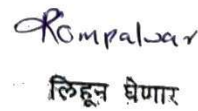 Rompalwar
लिहून घेणार